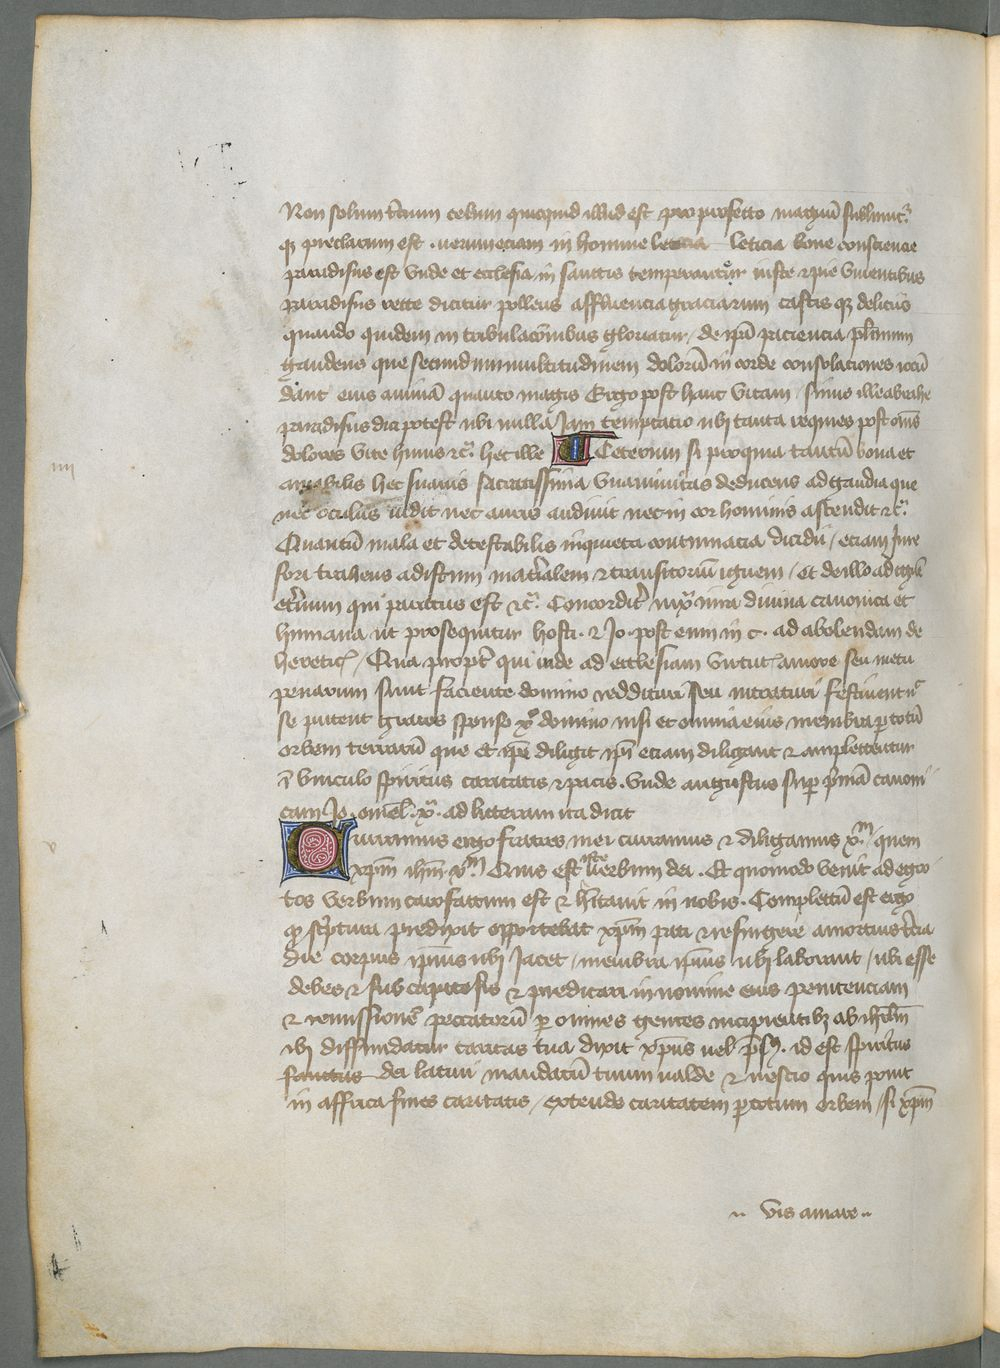 Non solum t̄cium celum quicquid illud est pro profecto magnū sublimit͛
q̄ preclarum est . uerum eciam in homine leticia leticia bone consciencie
paradisus est Vnde et ecclesia in sanctis temperanter iuste ⁊ pie viuentibus
paradisus recte dicitur pollens affluencia graciarum castis q̄ deliciis
quando quidem in tribulacōnibus gloriatur / de ip̄a paciencia pl̄imum
gaudens que secundum multitudinem dolorū in corde consolaciones iocū
dant eius animā quanto magis Ergo post hanc vitam / sinus ille abrahe
paradisus dici potest ubi nulla Jam temptacio ubi tanta requies post om̄s
dolores vite huius ⁊c͛ . hec ille Ceterum si pro quia tantū bona et
amabilis hec suauis sacratissima Vnanimitas deducens ad gaudia que
nec oculus uidit nec auris audiuit nec in cor hominis ascendit ⁊c͛
Quantū mala et detestabilis inquieta contumacia / eciam Jure
fori trahens ad istum mat͛ialem ⁊ transitoriū ignem / et de illo ad
et͛num qui paratus est ⁊c͛ . Concordit͛ iura diuina canonica et
humana ut prosequitur hosti . ⁊ Jo . post eum in c . ad abolendam de
heretic͛ / Qua propt͛ qui inde ad ecclesiam amore seu metu
penarum sunt faciente domino reddituri seu intraturi
se putent gratos sponso xp̄o domino nisi et omnia eius membra ꝑ totū
orbem terrarū que et ip̄e diligit ip̄i eciam diligant ⁊ amplectentur
ī vinculo spiritus caritatis ⁊ pacis . vnde augustus suꝑ p͛mā canoni
cam Jo . omel͛ . x͛ . ad litteram ita dicit
Curramus ergo fratres mei curramus ⁊ diligamus x͛m / quem
xp̄m ih̄m x͛m Quis est iste verbum dei . Et quomodo venit ad egro
tos verbum caro factum est ⁊ h̄itauit in nobis . Completū est ergo
q̄ sc͛ptura predixit opportebat xp̄m pati ⁊ resurgere a mortuis t͛cia
die corpus ip̄ius ubi Jacet / membra ip̄ius ubi laborant / ubi esse
debes ⁊ sub capite sis ⁊ predicari in nomine eius penitenciam
⁊ remissionē peccatorū ꝑ omnes gentes incipientibꝫ ab ih̄rl̄m
ibi diffundatur caritas tua dixit xp̄us uel p̄s . id est spiritus
sanctus dei latum mandatū tuum ualde ⁊ nescio quis ponit
in affrica fines caritatis / extende caritatem ꝑ totum orbem / si xp̄m
.. vis amare ..